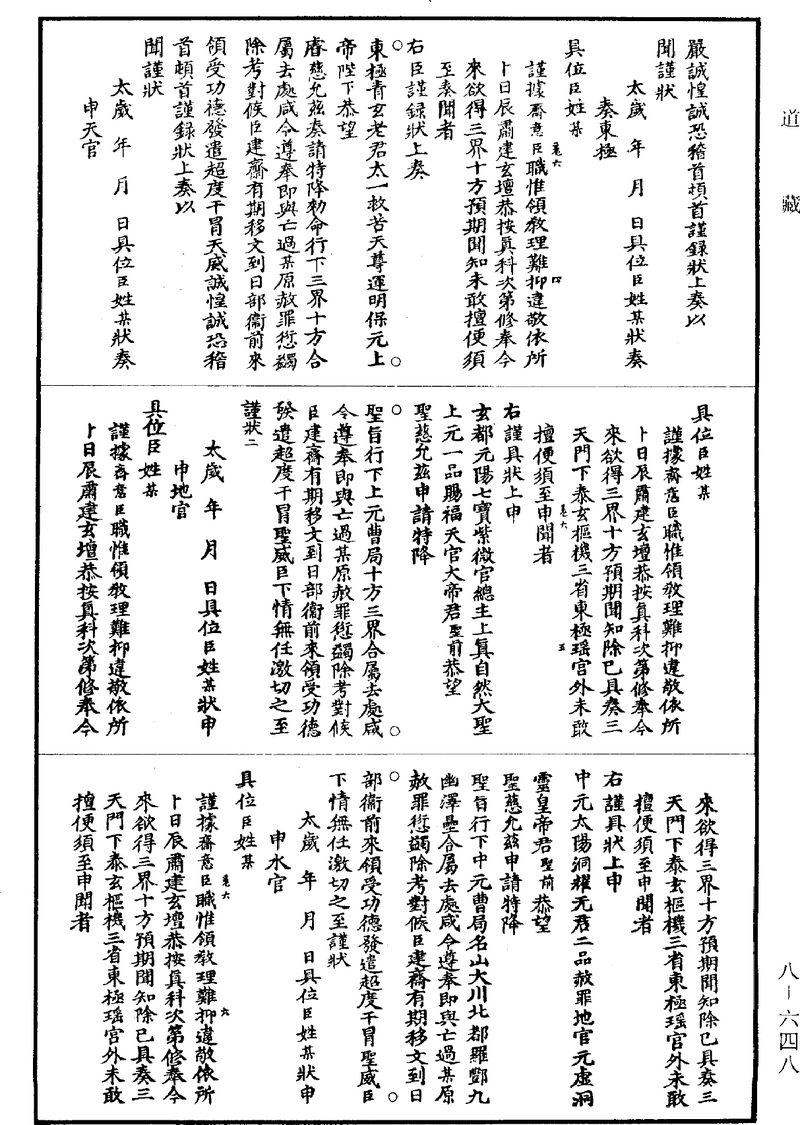 道藏
嚴誠惶誠恐稽首頓首謹録狀上奏以
聞謹狀
太歲 年 月 日具位臣姓某狀奏
奏東極
具位臣姓某
謹據齋意臣職惟領教理難抑違敬依所
卜日辰肅建玄壇恭按真科次第修奉今
來欲得三界十方預期聞知未敢擅便須
至奏聞者
右臣謹録狀上奏
東極青玄老君太一救苦天尊運明保元上
帝陛下恭望
睿慈允兹奏請特降勑命行下三界十方合
屬去處咸令遵奉即與亡過某原赦罪愆蠲
除考對候臣建齋有期移文到日部衞前來
領受功德發遣超度干冒天威誠惶誠恐稽
首頓首謹録狀上奏以
聞謹狀
太歲 年 月 日具位臣姓某狀奏
申天官
具位臣姓某
謹據齋意臣職惟領教理難抑違敬依所
卜日辰肅建玄壇恭按真科次第修奉今
來欲得三界十方預期聞知除已具奏三
天門下泰玄樞機三省東極瑶宫外未敢
擅便須至申聞者
右謹具狀上申
玄都元陽七寶紫微宫總主上真自然大聖
上元一品賜福天官大帝君聖前恭望
聖慈允兹申請特降
聖旨行下上元曹局十方三界合屬去處咸
令遵奉即與亡過某原赦罪愆蠲除考對候
臣建齋有期移文到日部衞前來領受功德
發遣超度干冒聖威臣下情無任激切之至
謹狀二
太歲 年 月 日具位臣姓某狀申
申地官
具位臣姓某
謹據齋意臣職惟領教理難抑違敬依所
卜日辰肅建玄壇恭按真科次第修奉今
來欲得三界十方預期聞知除已具奏三
天門下泰玄樞機三省東極瑶宫外未敢
擅便須至申聞者
右謹具狀上申
中元太陽洞耀元君二品赦罪地官元虚洞
靈皇帝君聖前恭望
聖慈允兹申請特降
聖旨行下中元曹局名山大川北都羅酆九
幽澤壘合屬去處咸令遵奉即與亡過某原
赦罪愆蠲除考對候臣建齋有期移文到日
部衞前來領受功德發遣超度干冒聖威臣
下情無任激切之至謹狀
太歲 年 月 日具位臣姓某狀申
申水官
具位臣姓某
謹據齋意臣職惟領教理難抑違敬依所
卜日辰肅建玄壇恭按真科次第修奉今
來欲得三界十方預期聞知除已具奏三
天門下泰玄樞機三省東極瑶宫外未敢
擅便須至申聞者
卷六 四
卷六 五
卷六 六
八－六四八